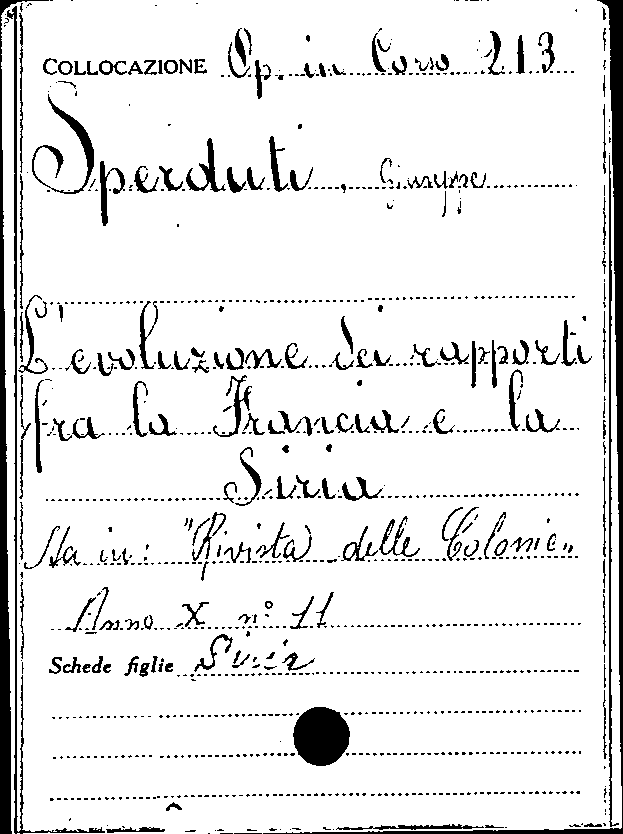 COLLOCAZIONE Op. in Corso 213
Sperduti, Giuseppe
L'evoluzione dei rapporti
fra la Francia e la
Siria
Sta in: "Rivista delle Colonie"
Anno X n° 11
Schede figlie Siria